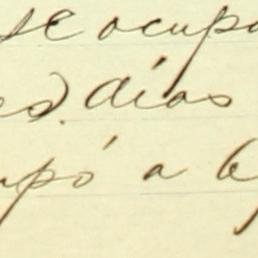 se ocupo
es) dias
upó a